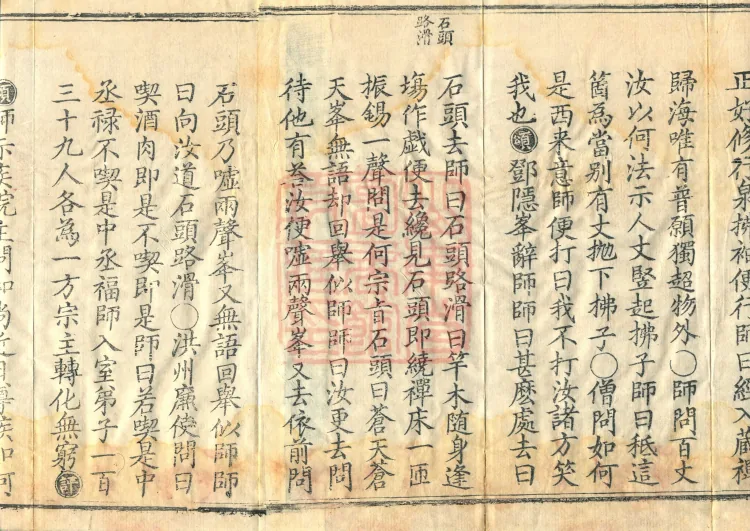 正好修行泉拂袖便行師曰經入藏禪
歸海唯有普願獨超物外○師問百丈
汝以何法示人丈豎起拂子師曰秪這
箇為當別有丈抛下拂子○僧問如何
是西来意師便打曰我不打汝諸方笑
我也 頌 鄧隱峯辭師師曰甚麽處去曰
石頭路滑
石頭去師曰石頭路滑曰竿木隨身逢
塲作戯便去纔見石頭即繞禪床一匝
振錫一聲問是何宗旨石頭曰蒼天蒼
天峯無語却回舉似師師曰汝更去問
待他有荅汝便噓兩聲峯又去依前問
石頭乃噓兩聲峯又無語回舉似師師
曰向汝道石頭路滑○洪州廉使問曰
喫酒肉即是不喫即是師曰若喫是中
丞禄不喫是中丞福師入室弟子一百
三十九人各為一方宗主轉化無窮
頌 師示疾院主問和尚近日尊疾如何